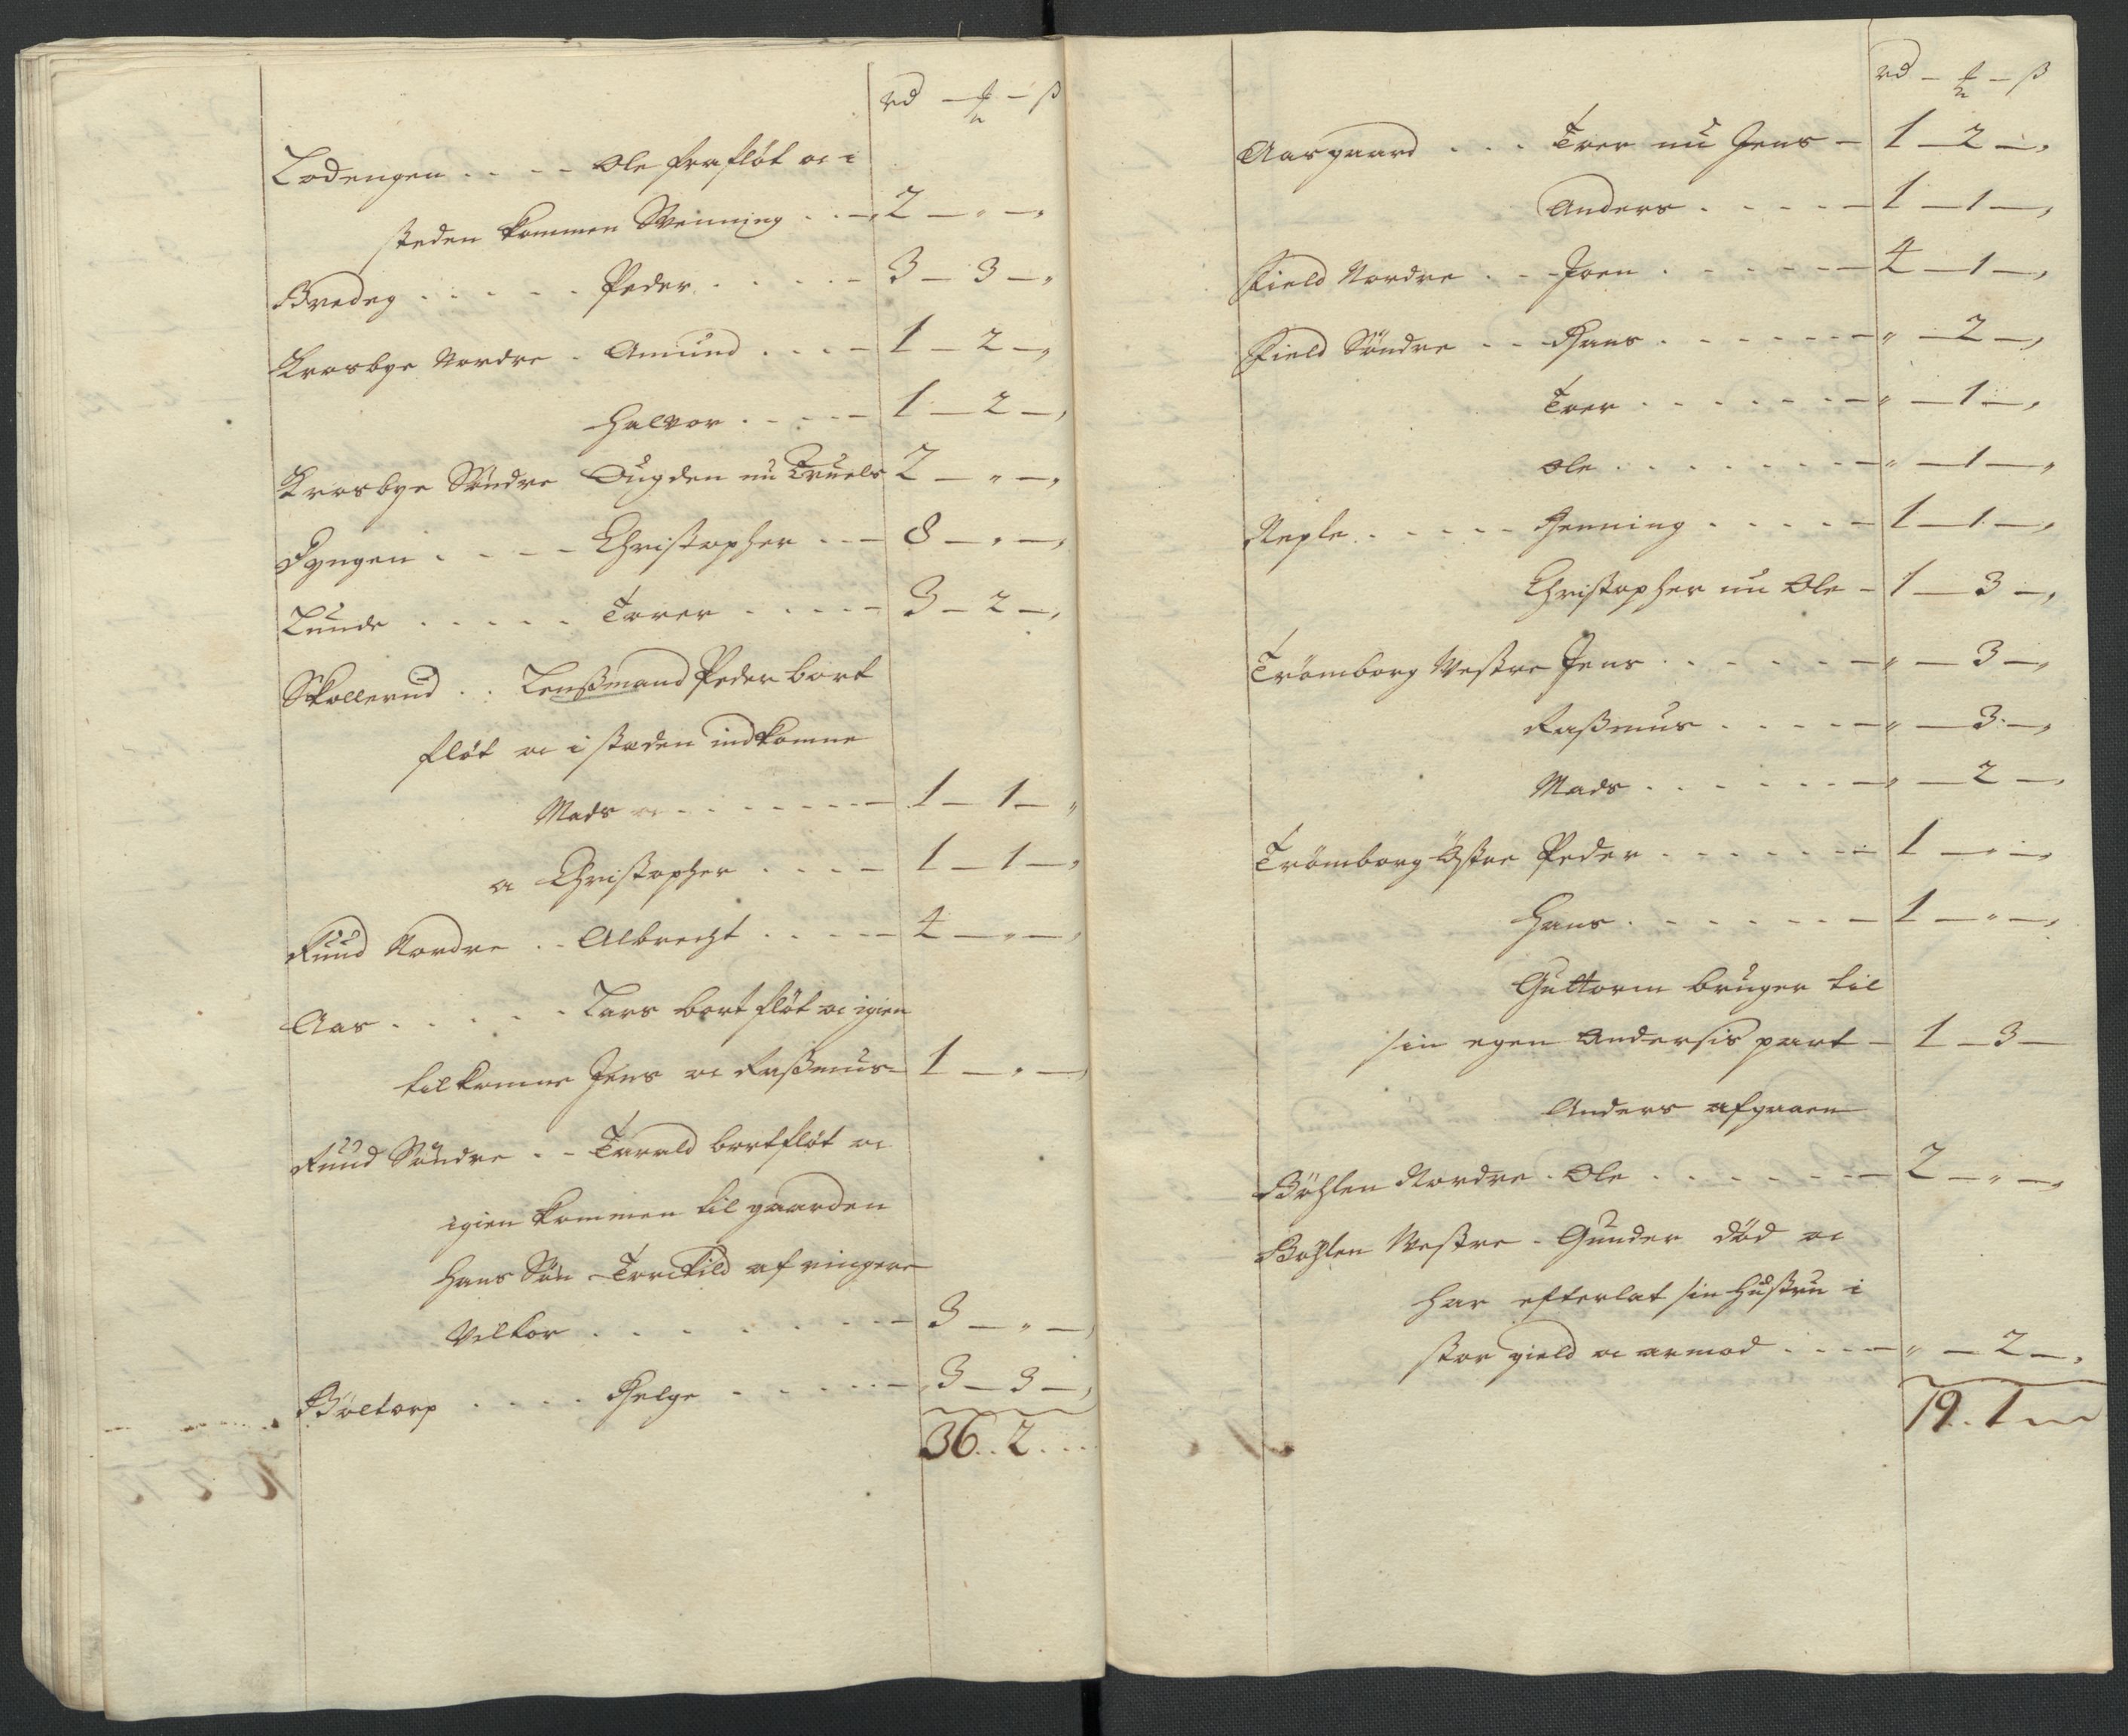 rd - ꝥ - ß
Lodengen . . . . Ole fraflöt oc i
steden kommen Svenning . . - 2 - „ - „
Bredeg . . . . . Peder . . . . - 3 - 3 - „
Krosbye Nordre . Amund . . . - 1 - 2 - „
Halvor . . . . - 1 - 2 - „
Krosbye Söndre Ougden nu Truels 2 - „ - „
Dyngen . . . . Christopher . . - 8 - „ - „
Lunde . . . . . Torer . . . . - 3 - 2 - „
Skollerud . . Lensmand Peder bort
flöt oc i stæden indkomne
Mads oc . . . . . . . - 1 - 1 - „
Christopher . . . . - 1 - 1 - „
Ruud Nordre . . Albrecht . . . . - 4 - „ - „
Aas . . . . . Lars bort flöt oc igien
tilkomne Jens oc Rasmus - 1 - „ - „
Ruud Söndre . . Tarald bortflöt oc
igien kommen til gaarden
hans Sön Torckild af ringere
Velkor . . . . . . . . - 3 - „ - „
Böltorp . . . . Helge . . . . . - 3 - 3 - „
36 . . 2 . . .
rd - ꝥ - ß
Aasgaard . . . Iver nu Jens - 1 - 2 - „
Anders . . . . - 1 - 1 - „
Field Nordre . . Joen . . . . . - 4 - 1 - „
Field Söndre . . Hans . . . . . - „ - 2 - „
Iver . . . . . . - „ - 1 - „
Ole . . . . . . . - „ - 1 - „
Neple . . . . . Henning . . . . - 1 - 1 - „
Christopher nu Ole - 1 - 3 - „
Trömborg Westre Jens . . . . . . - „ - 3 - „
Rasmus . . . . . - „ - 3 - „
Mads . . . . . . - „ - 2 - „
Trömborg Östre Peder . . . . . . - 1 - „ - „
Hans . . . . . . - 1 - „ - „
Guttorm bruger til
sin egen Andersis part - 1 - 3 -
Anders afgaaen
Böhlen Nordre . Ole . . . . . . - 2 - „ - „
Böhlen Westre . Gunder död oc
har efterlat sin Hustru i
stor gield oc armod . . . . - „ - 2 - „
19 . 1